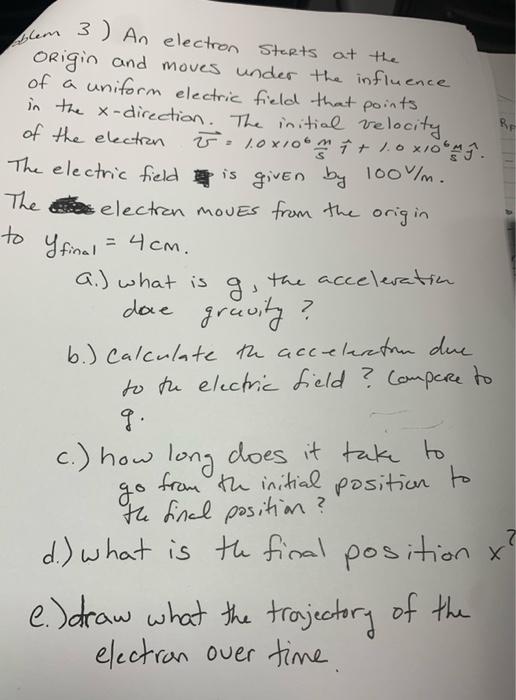 blem 3) An electron starts at the
origin and moves under the influence
of a uniform electric field that points
in the x-direction. The initial velocity
of the electron v⃗ = 1.0 x10⁶ m/s î + 1.0 x10⁶ m/s ĵ.
The electric field is given by 100 V/m.
The electron moves from the origin
to y final = 4 cm.
a.) what is g, the acceleration
doe gravity?
b.) Calculate the acceleration due
to the electric field? Compare to
g.
c.) how long does it take to
go from the initial position to
the final position?
d.) what is the final position x?
e.) draw what the trajectory of the
electron over time.